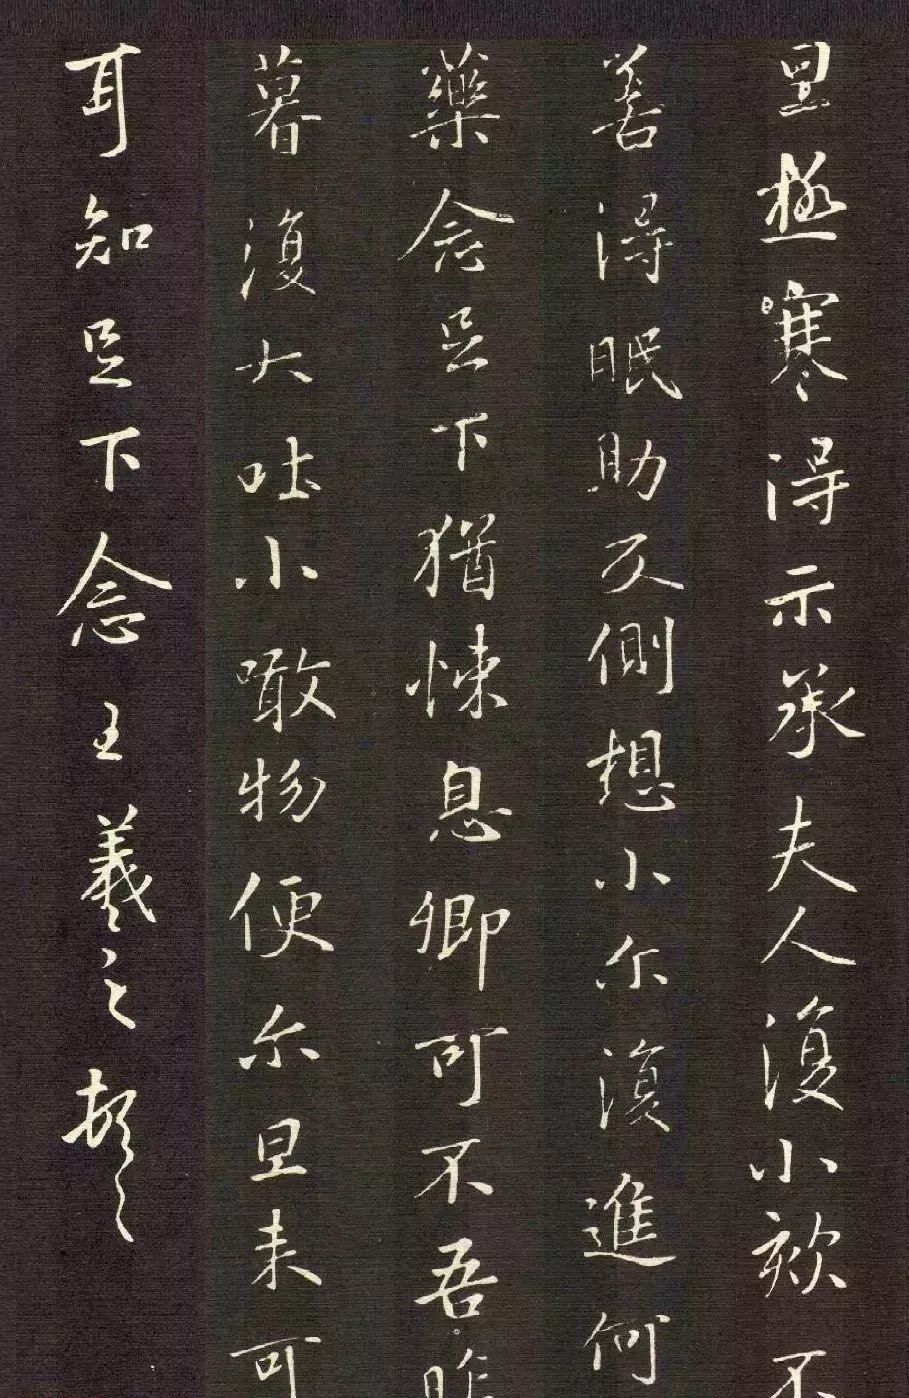 里極寒得示承夫人復小欬不
善得眠助反側想小尒復進何
藥念足下猶悚息卿可不吾昨
暮復大吐小噉物便尒旦来可
耳知足下念王羲之頓